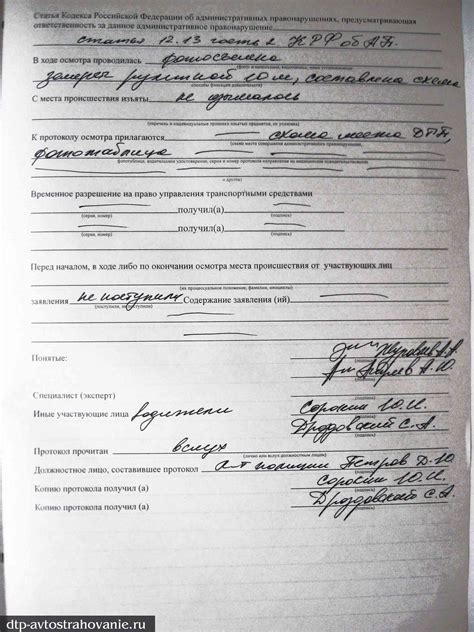 Статья Кодекса Российской Федерации об административных правонарушениях, предусматривающая
ответственность за данное административное правонарушение
статья 12.13 часть 2 КРФ об АП.
В ходе осмотра проводилась фотосъемка
замеры рулеткой 10 м, составлена схема
С места происшествия изъяты не изымалось
К протоколу осмотра прилагаются схема места ДТП,
фототаблица
(и другое)
Временное разрешение на право управления транспортными средствами
получил(а)
(серия, номер) (подпись)
получил(а)
(серия, номер) (подпись)
Перед началом, в ходе либо по окончании осмотра места происшествия от участвующих лиц
(их процессуальное положение, фамилии, инициалы)
заявления не поступили Содержание заявления (ий)
(поступили, не поступили)
Понятые:
(подпись)
(подпись)
Специалист (эксперт)
(подпись)
Иные участвующие лица водители Сорокин Ю.И.
Дроздовский С.А.
Протокол прочитан вслух
(лично или вслух должностным лицом)
Должностное лицо, составившее протокол л-т полиции Петров Д.Ю.
Копию протокола получил (а) Сорокин Ю.И.
Копию протокола получил (а) Дроздовский С.А.
dtp-avtostrahovanie.ru